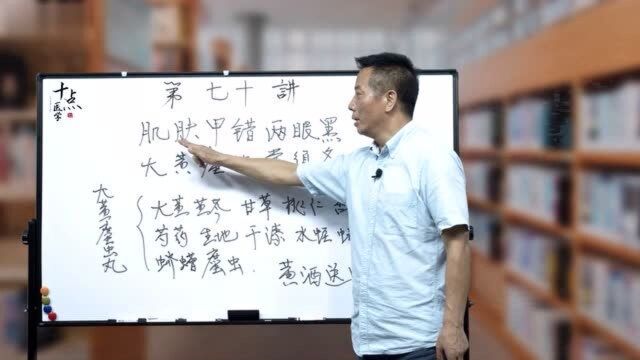 十点
医学
第七十讲
肌肤甲错两眼黑
大黄
大黄䗪虫丸
大黄黄芩甘草桃仁
芍药生地干漆水蛭
蛴螬䗪虫.
黄酒送